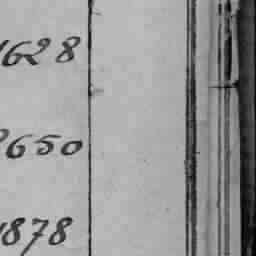 1628
2650
1878